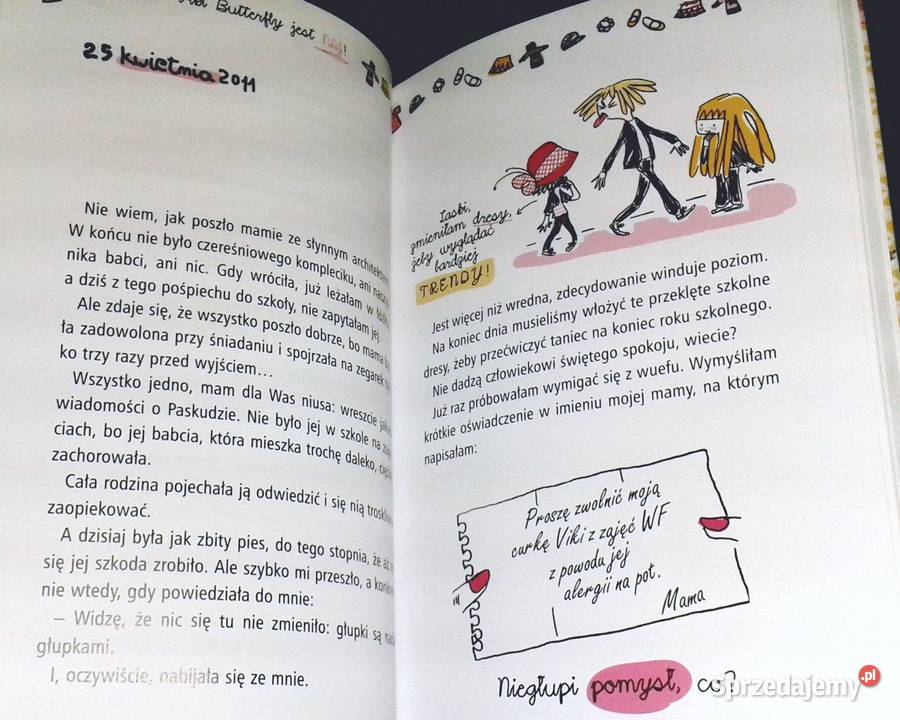 Butterfly jest naj!
25 kwietnia 2011
Nie wiem, jak poszło mamie ze słynnym
W końcu nie było czereśniowego kompleciku, ani
nika babci, ani nic. Gdy wróciła, już leżałam w
a dziś z tego pośpiechu do szkoły, nie zapytałam jej.
Ale zdaje się, że wszystko poszło dobrze, bo mama
ła zadowolona przy śniadaniu i spojrzała na zegarek
ko trzy razy przed wyjściem...
Wszystko jedno, mam dla Was niusa: wreszcie
wiadomości o Paskudzie. Nie było jej w szkole na
ciach, bo jej babcia, która mieszka trochę daleko,
zachorowała.
Cała rodzina pojechała ją odwiedzić i się nią
zaopiekować.
A dzisiaj była jak zbity pies, do tego stopnia, że aż
się jej szkoda zrobiło. Ale szybko mi przeszło, a
nie wtedy, gdy powiedziała do mnie:
– Widzę, że nic się tu nie zmieniło: głupki są
głupkami.
I, oczywiście, nabijała się ze mnie.
Laski,
zmieniłam dresy,
żeby wyglądać
bardziej
TRENDY!
Jest więcej niż wredna, zdecydowanie winduje poziom.
Na koniec dnia musieliśmy włożyć te przeklęte szkolne
dresy, żeby przećwiczyć taniec na koniec roku szkolnego.
Nie dadzą człowiekowi świętego spokoju, wiecie?
Już raz próbowałam wymigać się z wuefu. Wymyśliłam
krótkie oświadczenie w imieniu mojej mamy, na którym
napisałam:
Proszę zwolnić moją
curkę Viki z zajęć WF
z powodu jej
alergii na pot.
Mama
Niegłupi pomysł, co?
Sprzedajemy.pl